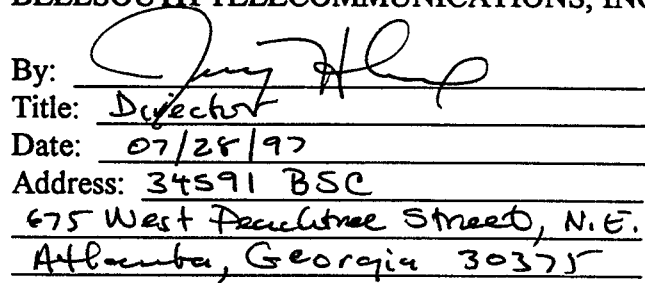 BELLSOUTH TELECOMMUNICATIONS, INC
By: Jerry H
Title: Director
Date: 07/28/97
Address: 34591 BSC
675 West Peachtree Street, N.E.
Atlanta, Georgia 30375